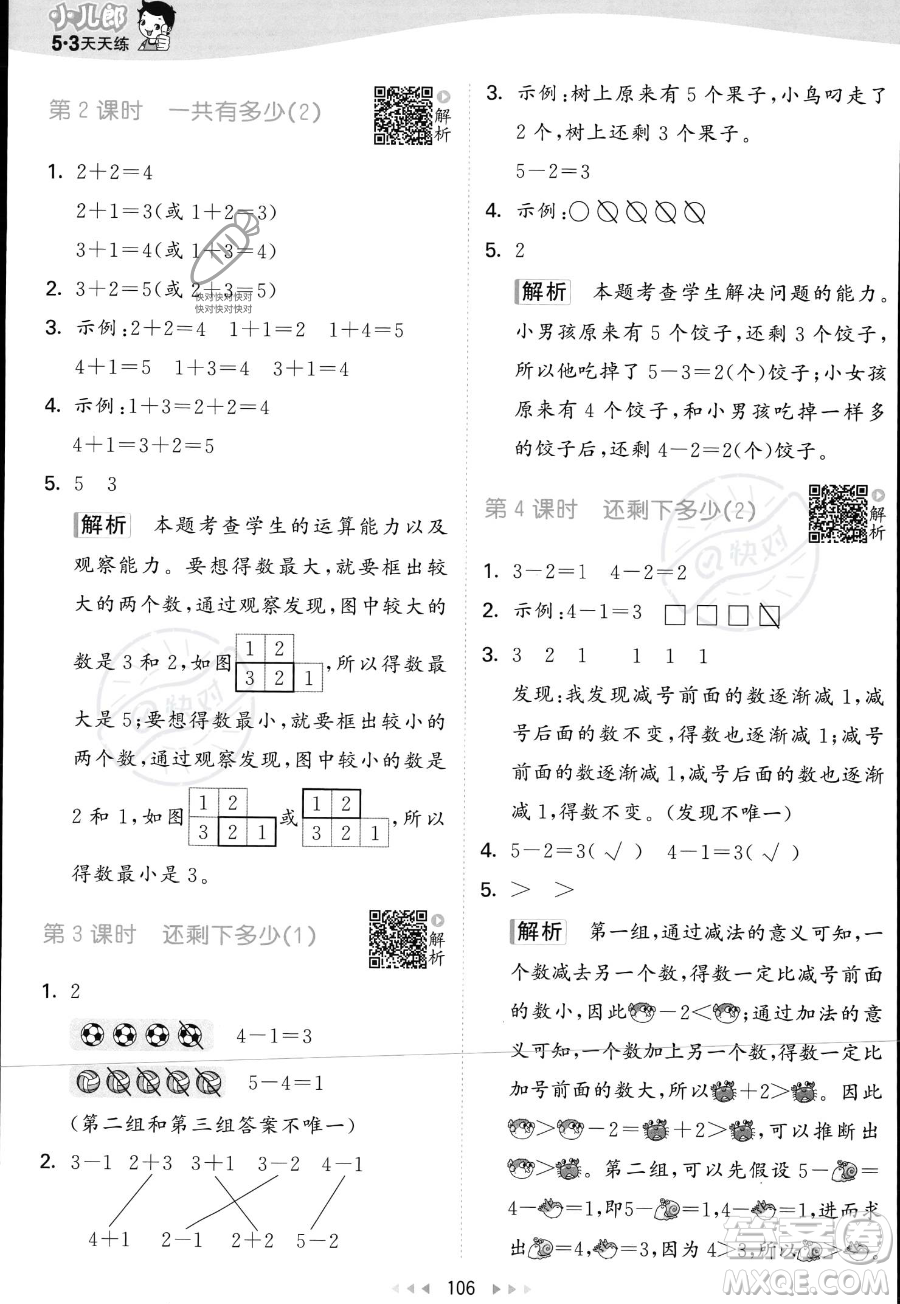 小儿郎
5·3天天练
第2课时 一共有多少(2)
解析
1. 2+2=4
2+1=3(或1+2=3)
3+1=4(或1+3=4)
2. 3+2=5(或2+3=5)
快对快对快对快对
快对快对快对快对
3. 示例:2+2=4 1+1=2 1+4=5
4+1=5 1+3=4 3+1=4
4. 示例:1+3=2+2=4
4+1=3+2=5
5. 5 3
解析 本题考查学生的运算能力以及
观察能力。要想得数最大,就要框出较
大的两个数,通过观察发现,图中较大的
1 2
数是3和2,如图 3 2 1 ,所以得数最
大是5;要想得数最小,就要框出较小的
两个数,通过观察发现,图中较小的数是
1 2 1 2
2和1,如图 3 2 1 或 3 2 1 ,所以
得数最小是3。
第3课时 还剩下多少(1)
解析
1. 2
4-1=3
5-4=1
(第二组和第三组答案不唯一)
2. 3-1 2+3 3+1 3-2 4-1
4+1 2-1 2+2 5-2
3. 示例:树上原来有5个果子,小鸟叼走了
2个,树上还剩3个果子。
5-2=3
4. 示例:
5. 2
解析 本题考查学生解决问题的能力。
小男孩原来有5个饺子,还剩3个饺子,
所以他吃掉了5-3=2(个)饺子;小女孩
原来有4个饺子,和小男孩吃掉一样多
的饺子后,还剩4-2=2(个)饺子。
第4课时 还剩下多少(2)
解析
1. 3-2=1 4-2=2
2. 示例:4-1=3
3. 3 2 1 1 1 1
发现:我发现减号前面的数逐渐减1,减
号后面的数不变,得数也逐渐减1;减号
前面的数逐渐减1,减号后面的数也逐渐
减1,得数不变。(发现不唯一)
4. 5-2=3(√) 4-1=3(√)
5. > >
解析 第一组,通过减法的意义可知,一
个数减去另一个数,得数一定比减号前面
的数小,因此 -2< ;通过加法的意
义可知,一个数加另一个数,得数一定比
加号前面的数大,所以 +2> 。因为
> -2= +2> ,可以推断出
> 。第二组,可以先假设5- =
4- =1,即5- =1,4- =1,进而求
出 =4, =3。因为4>3,所以 > 。
@快对
@快对
106
答案圈
MXQE.COM